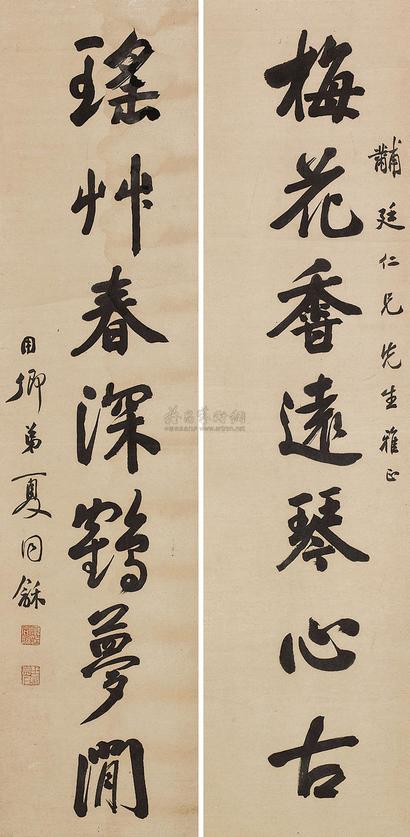 黼廷仁兄先生雅正
梅花香遠琴心古
瑤艸春深鶴夢閒
用卿弟夏同龢